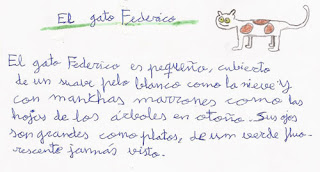 El gato Federico
El gato Federico es pequeño, cubierto
de un suave pelo blanco como la nieve y
con manchas marrones como las
hojas de los árboles en otoño. Sus ojos
son grandes como platos, de un verde fluo-
rescente jamás visto.